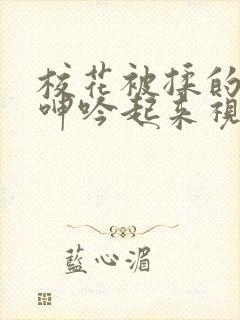 校花被揉的
呻吟起来视
蓝心湄